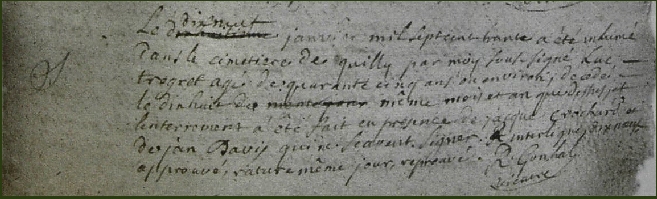 dixneuf
Le janvier mil sept cent trante a été inhumé
dans le cimetiere de quilly par moy sous signé Luc
trogret agé de quarante cinq ans ou environ, decedé
le dixhuit de même mois et an que dessus, et
l'enterrement a été fait en presence de jacque et
de jan Davis qui ne scavent signer. interligne dixneuf
approuvé, rature même jour, reprouvé. R.
vicaire